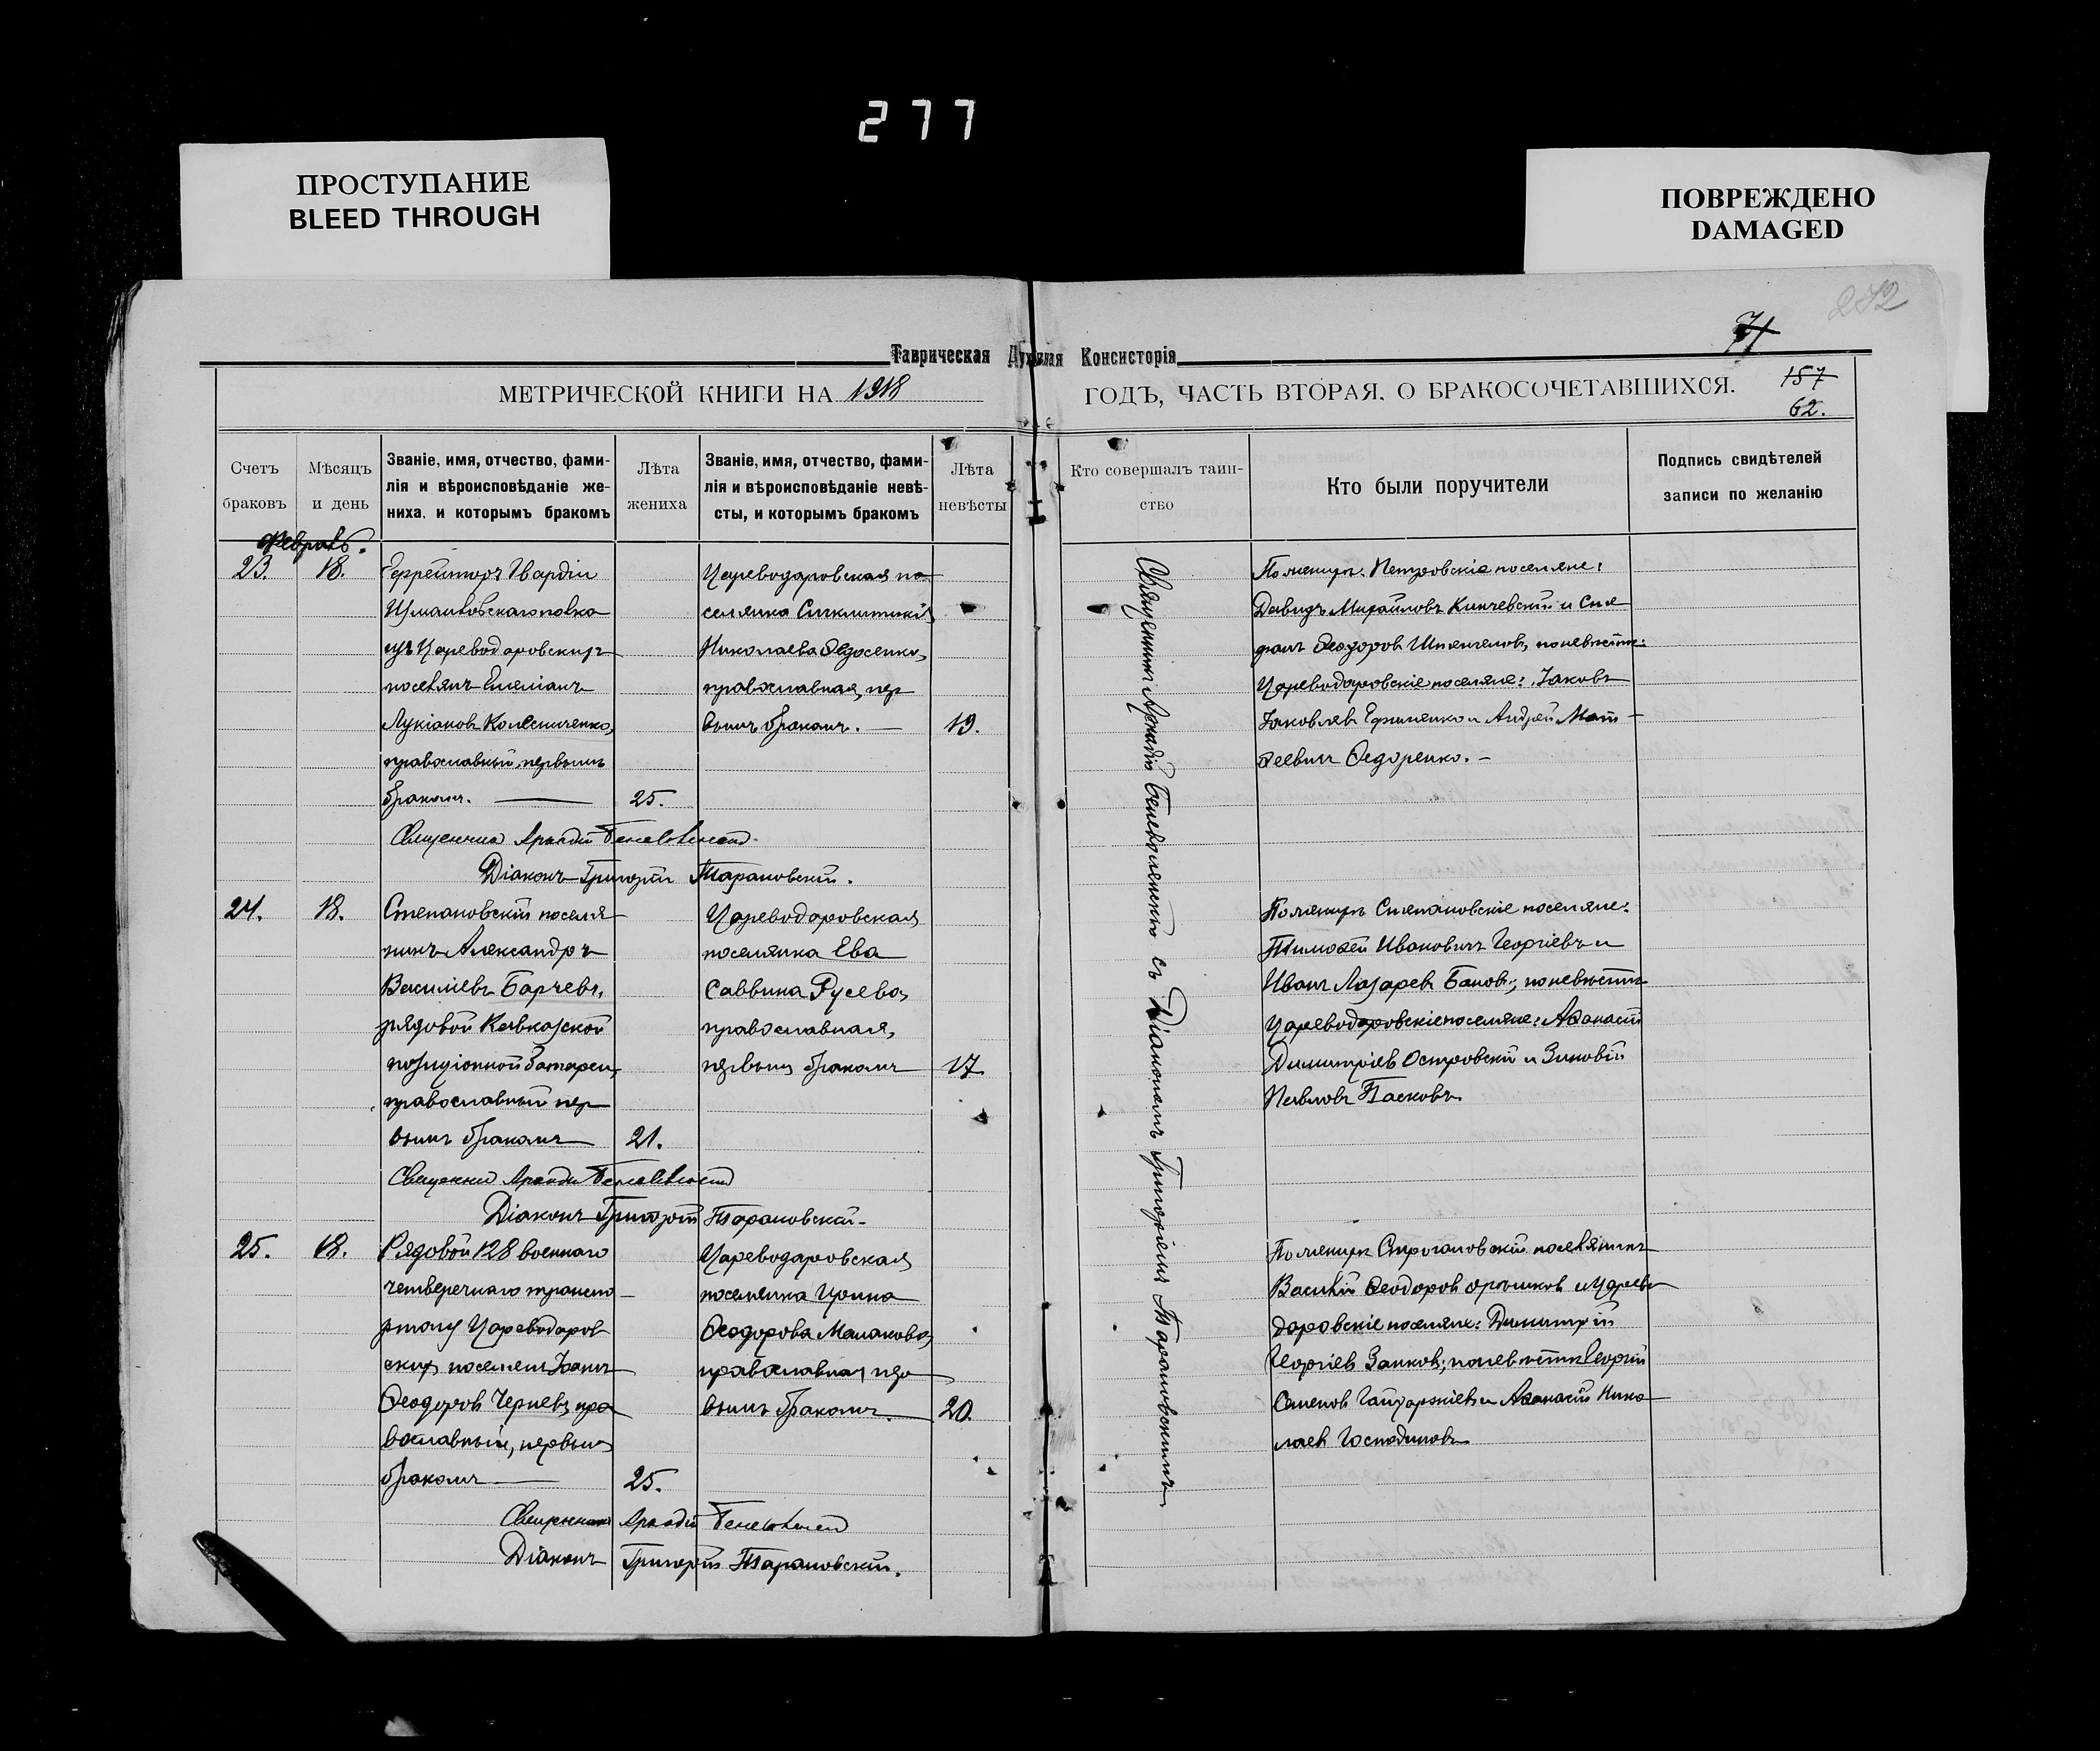 277
ПРОСТУПАНИЕ
BLEED THROUGH
ПОВРЕЖДЕНО
DAMAGED
272
71
Таврическая Духовная Консисторія
МЕТРИЧЕСКОЙ КНИГИ НА 1918
ГОДЪ, ЧАСТЬ ВТОРАЯ, О БРАКОСОЧЕТАВШИХСЯ.
157
62.
Счетъ
браковъ
Мѣсяцъ
и день
Званіе, имя, отчество, фами-
лія и вѣроисповѣданіе же-
ниха, и которымъ бракомъ
Лѣта
жениха
Званіе, имя, отчество, фами-
лія и вѣроисповѣданіе невѣ-
сты, и которымъ бракомъ
Лѣта
невѣсты
Кто совершалъ таин-
ство
Кто были поручители
Подпись свидѣтелей
записи по желанію
Февраль.
23.
18.
Ефрейторъ Гвардіи
Измаиловскаго полка
изъ Цареводаровскихъ
поселянъ Емеліанъ
Лукіановъ Колесниченко,
православный, первымъ
бракомъ.
25.
Цареводаровская по-
селянка
Николаева Федосенко,
православная, пер
вымъ бракомъ.
19.
Священникъ Аркадій съ Діакономъ Григоріемъ Тарановскимъ
По жениху: Петровскіе поселяне:
Давидъ Михайловъ и Сте
фанъ Ѳеодоровъ по невѣстѣ:
Цареводаровскіе поселяне: Іаковъ
Іаковлевъ Ефименко и Андрей Мат-
ѳеевичъ Ѳедоренко.
Священникъ Аркадій
Діаконъ Григорій Тарановскій.
24.
18.
Степановскій поселя
нинъ Александръ
Василіевъ Барчевъ,
рядовой Кавказской
позиціонной батареи,
православный пер
вымъ бракомъ
21.
Цареводаровская
поселянка Ева
Саввина Русева,
православная,
первымъ бракомъ
17.
По жениху Степановскіе поселяне:
Тимоѳей Ивановичъ Георгіевъ и
Иванъ Лазаревъ Бановъ; по невѣстѣ
Цареводаровскіе поселяне: Аѳанасій
Димитріевъ Островскій и Зиновій
Павловъ Пасковъ.
Священникъ Аркадій
Діаконъ Григорій Тарановскій.
25.
18.
Рядовой 128 военнаго
четверечнаго транспо-
рта изъ Цареводаров
скихъ поселянъ Іоаннъ
Ѳеодоровъ Черневъ, пра
вославный, первымъ
бракомъ
25.
Цареводаровская
поселянка Ирина
Ѳеодорова Малакова,
православная, пер
вымъ бракомъ.
20.
По жениху Строгановскій поселянинъ
Василій Ѳеодоровъ и Царево
даровскіе поселяне: Димитрій
Георгіевъ Занковъ; по невѣстѣ Георгій
Семеновъ Гайдаржіевъ и Аѳанасій Нико
лаевъ Господиновъ
Священникъ Аркадій
Діаконъ Григорій Тарановскій.